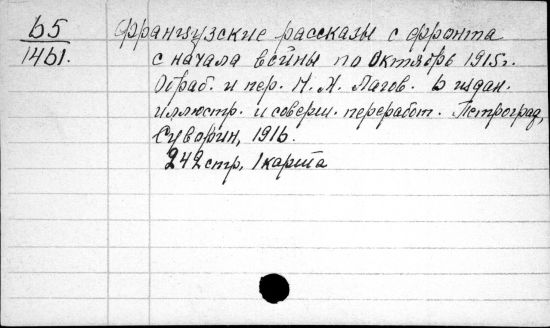 65 Французские рассказы с фронта
1461. с начала войны по Октябрь 1915 г.
Обраб. и пер. Н. М. Лагов. 6 издан.
иллюстр. и соверш. переработ. Петроград,
Суворин, 1916.
242 стр, 1 карта